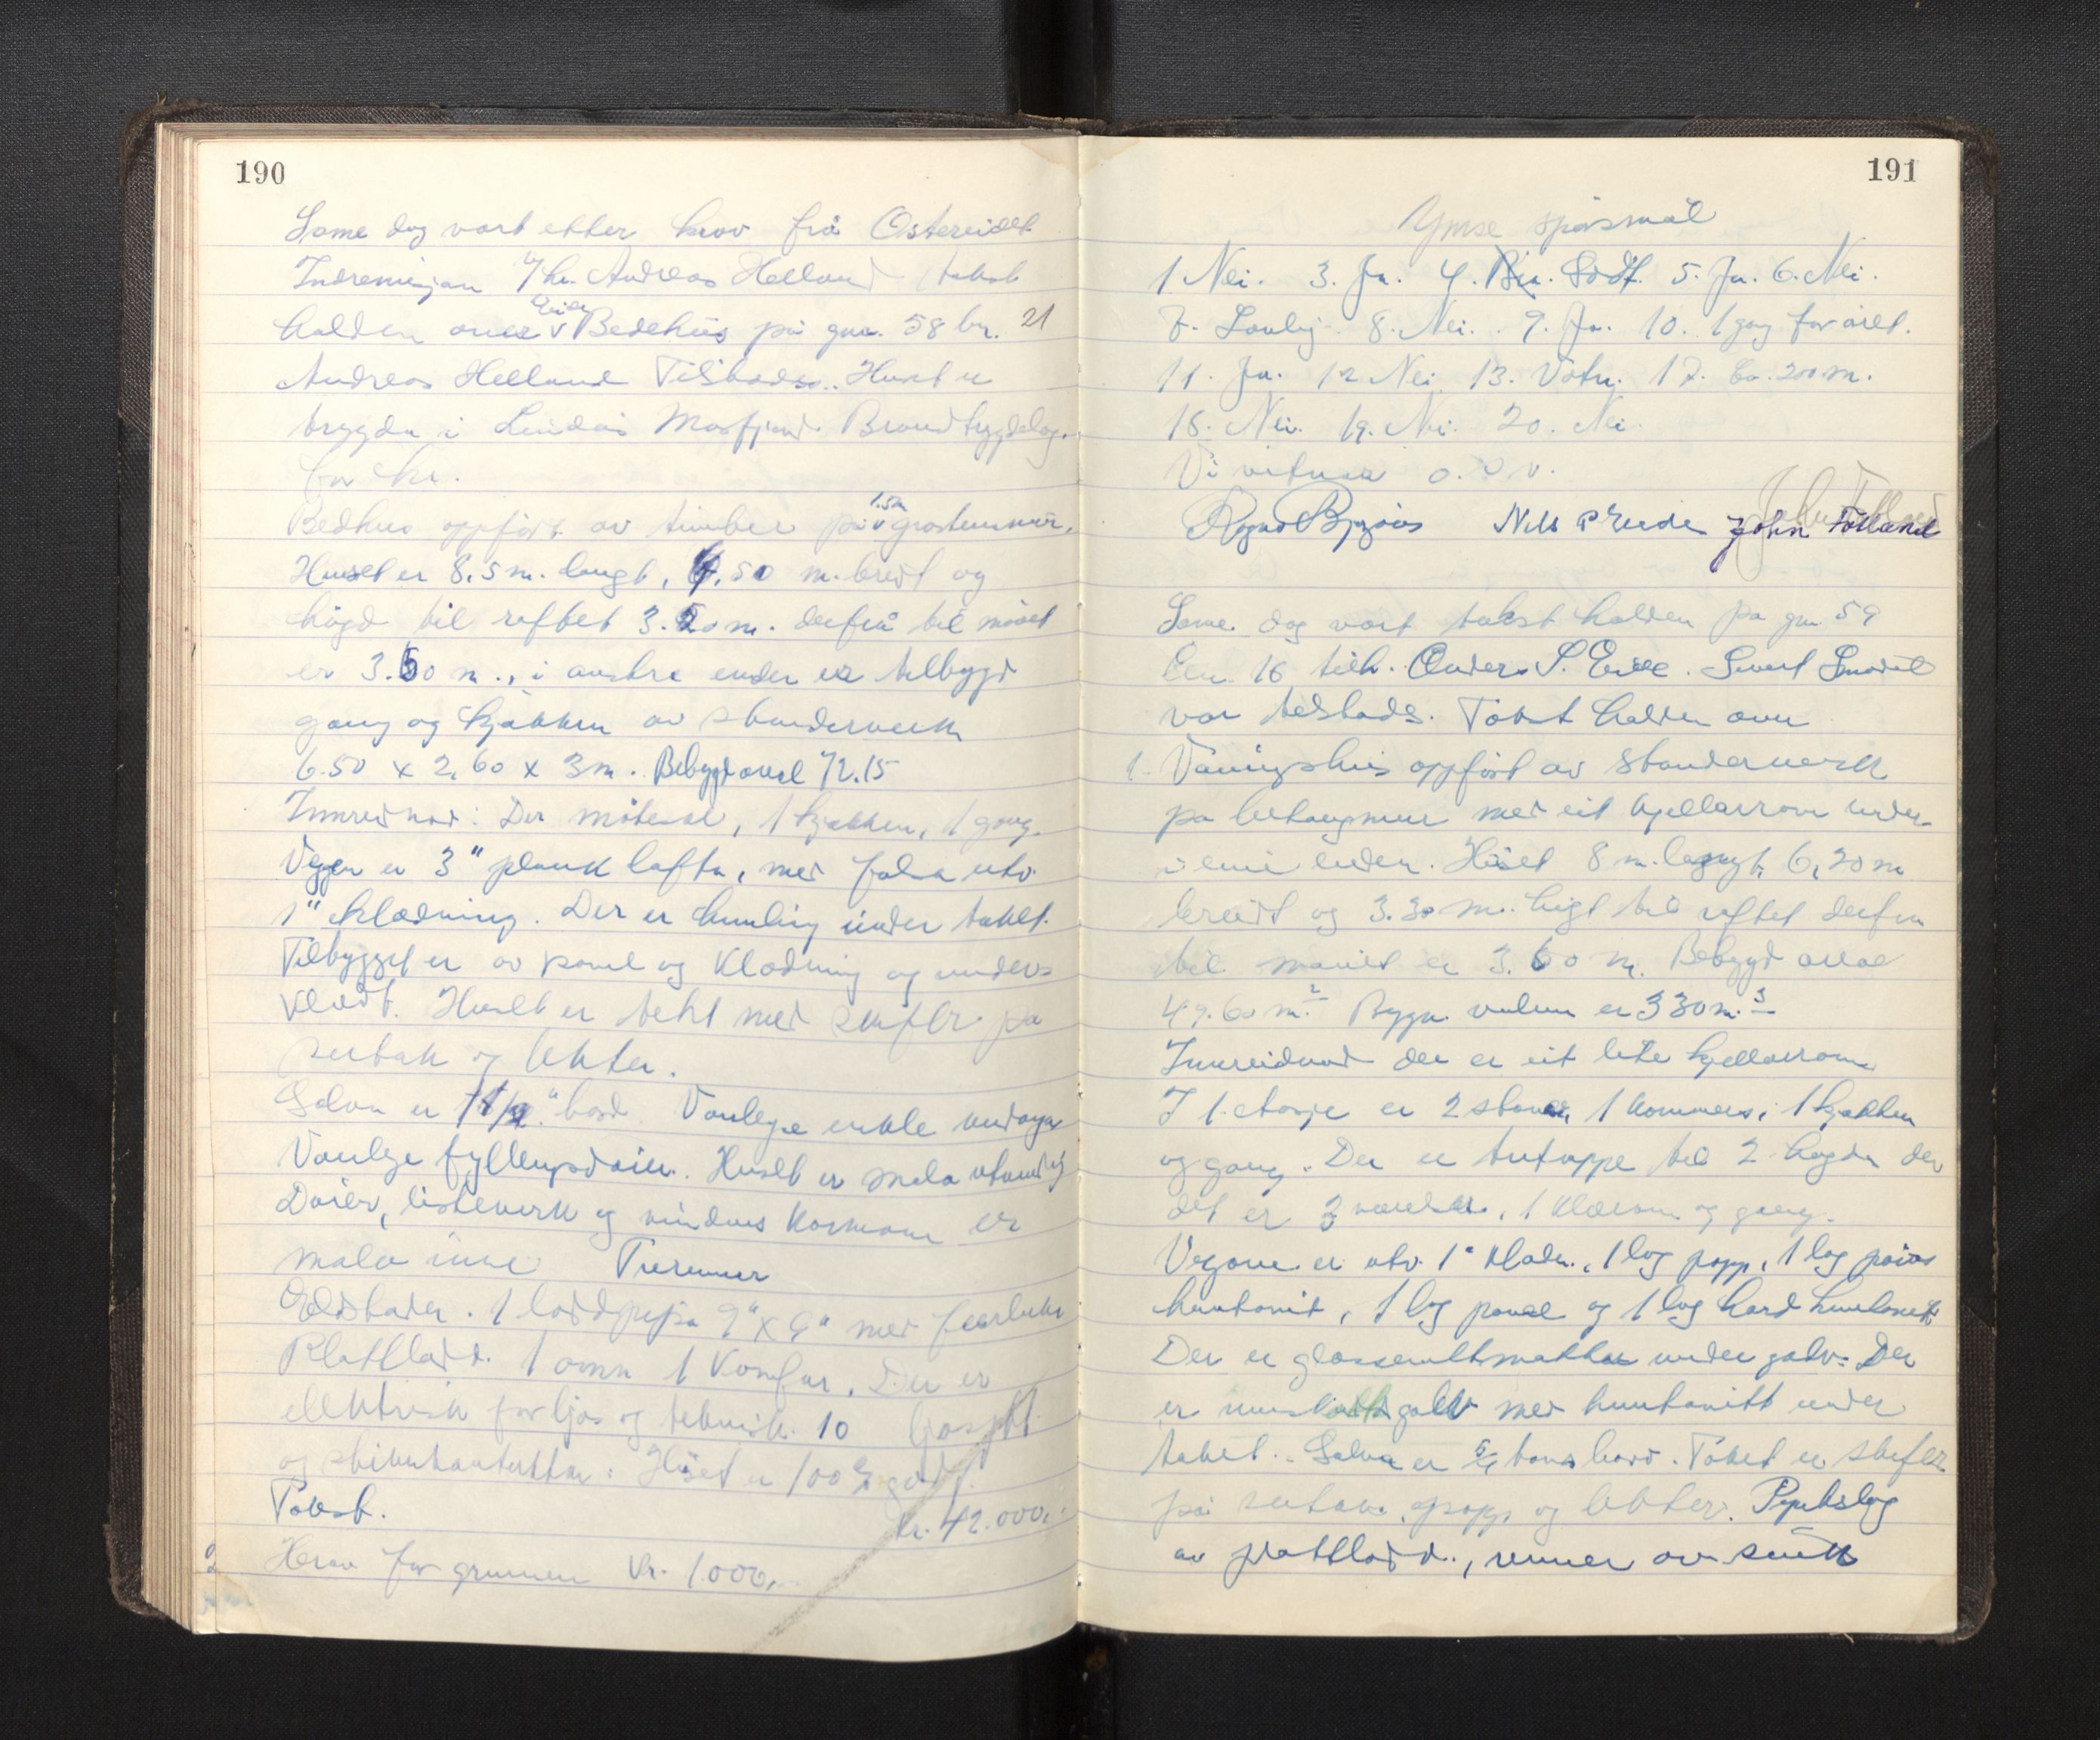 190
Same dag vart etter krav frå Ostereidet
Indremisjon v/ hr. Andreas Helland takst
halden over Eide Bedehus på gnr. 58 bnr. 21
Andreas Helland Tilstades. Huset er
trygda i Lindås Masfjord Brandtrygdelag
for kr.
Bedhus oppført av timber på 1.5m gråsteinmur.
Huset er 8,5 m. langt, 6,50 m. breidt og
høgd til raftet 3.20 m. derfrå til mønet
er 3.50 m., i austre enden er tilbygd
gang og kjøkken av stenderverk
6.50 x 2,60 x 3 m. Bebygd areal 72.15
Innreidnad: Der møtesal, 1 kjøkken, 1 gang.
Vegger er 3" plank lafta, med falsa utv.
1" klædning. Der er himling under taket.
Tilbygget er av panel og klædning og under-
klædt. Huset er tekt med skifer på
sutak og lekter.
Golva er 1 1/2" bord. Vanlege enkle vindauga
Vanlege fyllingsdører. Huset er mala utvendig
Dører, listverk og vindaus karmane er
mala inne
Eldstader. 1 lødd pipa 9" x 9" med
Plattlødd. 1 omn 1 komfyr. Der er
elektrisk for ljos og teknisk. 10 ljospkt.
og stikkontakter. Huset er 100 % godt.
Takst. kr. 42.000,-
Herav for grunnen kr. 1000,-
191
Ymse spørsmål
1 Nei. 3. Ja. 4. Godt. 5. Ja. 6. Nei.
7. Lovleg. 8. Nei. 9. Ja. 10. 1 gang for året.
11. Ja. 12 Nei 13. Vatn. 17. Ca. 200 m.
18. Nei. 19. Nei. 20. Nei.
Vi vitnar o.s.v.
Nils P Eide John Fotland
Same dag vart takst halden på gnr. 59
bnr. 16 tilh. Anders S. Eide. Sivert
var tilstades. Takst halden over
1. Våningshus oppført av stenderverk
på betongmur med eit kjellarrom under
i eine enden. Huset 8 m. langt, 6,20 m
breidt og 3.30 m. høgt til raftet derfrå
til mønet er 3.60 m. Bebygd areal
49.60 m.² Bygn. volum er 330 m.³
Innreidnad der er eit lite kjellarrom
I 1. etasje er 2 stover, 1 kammers, 1 kjøkken
og gang. Der er tretrappe til 2. høgda der
det er 3 værelser, 1 klærom og gang.
Vegane er utv. 1" klædn., 1 lag papp, 1 lag porøs
huntonit, 1 lag panel og 1 lag hard huntonit
Der er glassvattmatter under golv. Der
er med huntonitt under
taket. Golva er 5/4 toms bord. Taket er skifer
på sutak, papp og lekter.
av plattlødd., renner av sink